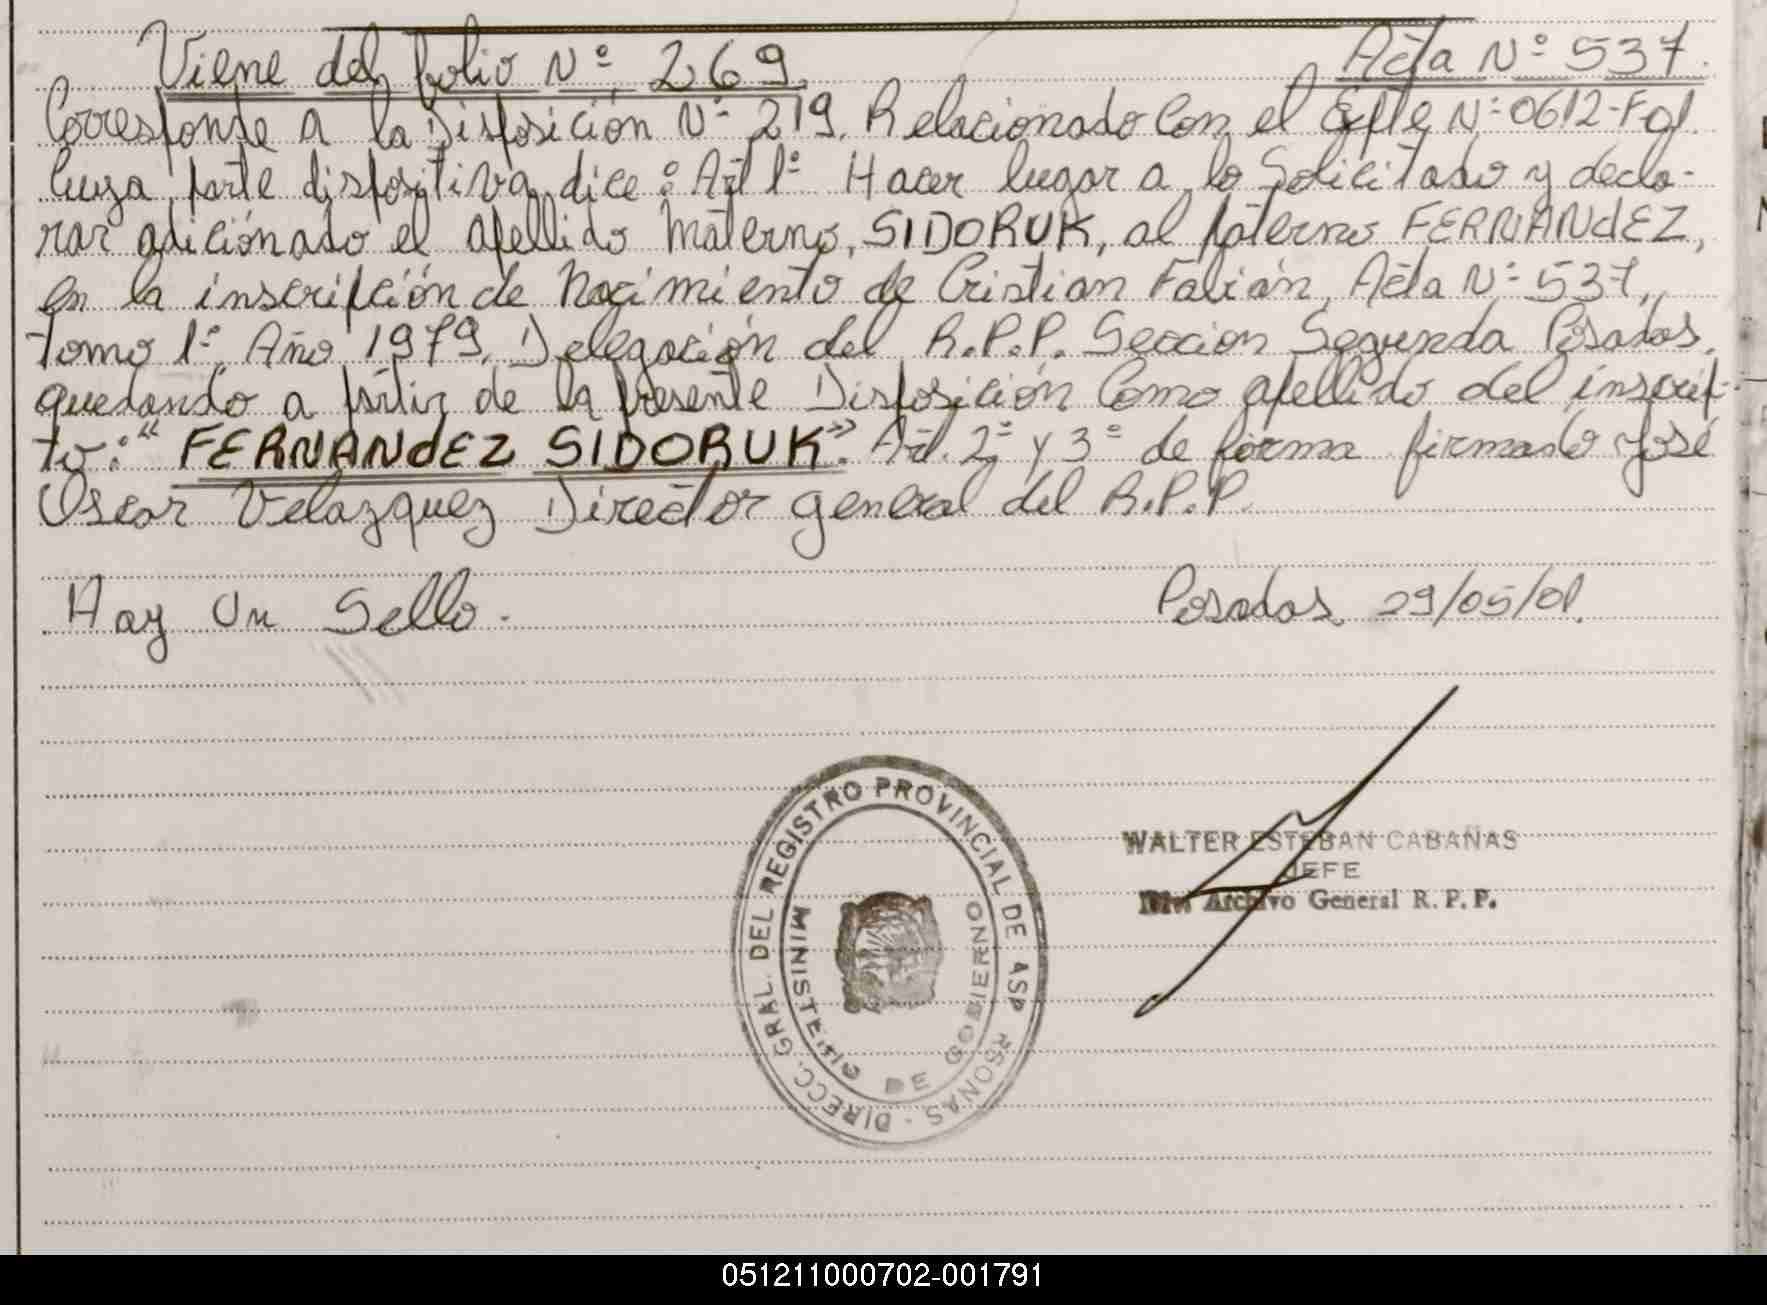 Viene del folio Nº 269. Acta Nº 537.
Corresponde a la Disposición Nº 219. Relacionado Con el Expte Nº 0612-F-01.
Cuya parte dispositiva dice: Art 1º Hacer lugar a lo Solicitado y decla-
rar adicionado el apellido Materno, SIDORUK, al paterno FERNANdEZ,
en la inscripción de Nacimiento de Cristian Fabián, Acta Nº 537,
Tomo 1º, Año 1979, Delegación del R.P.P. Seccion Segunda Posadas,
quedando a partir de la presente Disposición Como apellido del inscrip-
to: "FERNANdEZ SIDORUK". Art. 2º y 3º de forma firmado José
Oscar Velazquez Director general del R.P.P.
Hay Un Sello. Posadas 29/05/01.
WALTER ESTEBAN CABAÑAS
JEFE
Archivo General R. P. P.
DIRECC. GRAL. DEL REGISTRO PROVINCIAL DE
MINISTERIO DE GOBIERNO
051211000702-001791